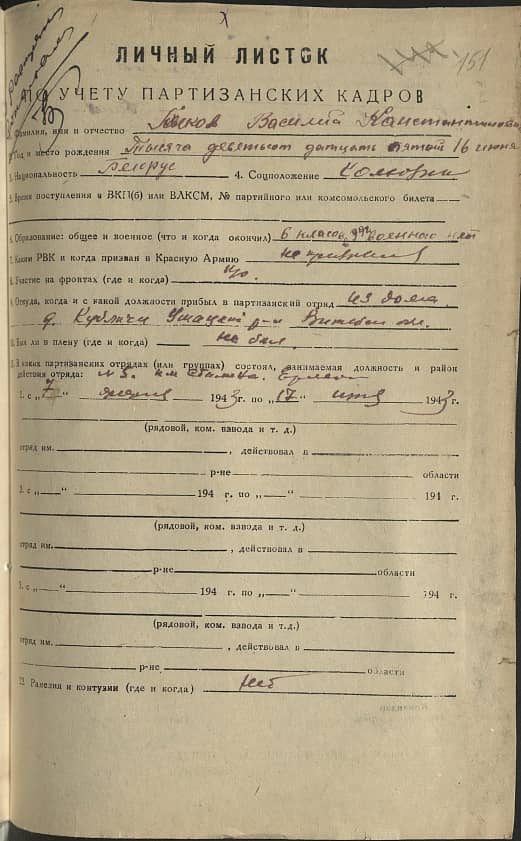 151
ЛИЧНЫЙ ЛИСТОК
ПО УЧЕТУ ПАРТИЗАНСКИХ КАДРОВ
Фамилия, имя и отчество Василий Константинович
Год и место рождения Тысяча девятьсот дватцать пятой 16 июня
3. Национальность Белорус 4. Соцположение
5. Время поступления в ВКП(б) или ВЛКСМ, № партийного или комсомольского билета
6. Образование: общее и военное (что и когда окончил) 6 класов, военное нет
7. Каким РВК и когда призван в Красную Армию
8. Участие на фронтах (где и когда)
9. Откуда, когда и с какой должности прибыл в партизанский отряд из дома
д. Кубличи Ушацкий р-н
10. Был ли в плену (где и когда) не был
11. В каких партизанских отрядах (или группах) состоял, занимаемая должность и район
действия отряда: № 3.
1. с „7" 1943 г. по „17" 1943 г.
(рядовой, ком. взвода и т. д.)
отряд им. , действовал в
р-не области
2. с „ " 194 г. по „ " 194 г.
(рядовой, ком. взвода и т. д.)
отряд им. , действовал в
р-не области
3. с „ " 194 г. по „ " 194 г.
(рядовой, ком. взвода и т.д.)
отряд им. , действовал в
р-не области
12. Ранения и контузии (где и когда) нет